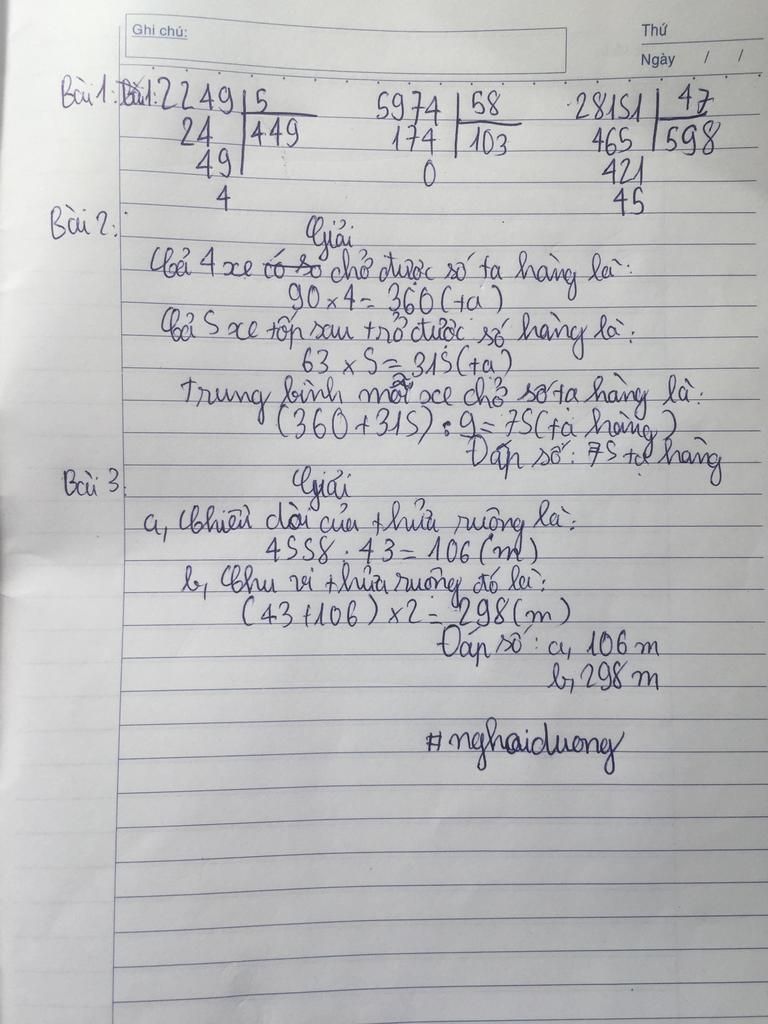 Ghi chú:
Thứ
Ngày / /
Bài 1: Bài 1: 2249 5 5974 58 28151 47
24 449 174 103 465 598
49 0 421
4 45
Bài 2:
Giải
Cả 4 xe có số chở được số tạ hàng là:
90 x 4 = 360 (tạ)
Cả 5 xe tốp sau trở được số hàng là:
63 x 5 = 315 (tạ)
Trung bình mỗi xe chở số tạ hàng là:
(360 + 315) : 9 = 75 (tạ hàng)
Đáp số: 75 tạ hàng
Bài 3:
Giải
a, Chiều dài của thửa ruộng là:
4558 : 43 = 106 (m)
b, Chu vi thửa ruộng đó là:
(43 + 106) x 2 = 298 (m)
Đáp số: a, 106 m
b, 298 m
#nghaiduong